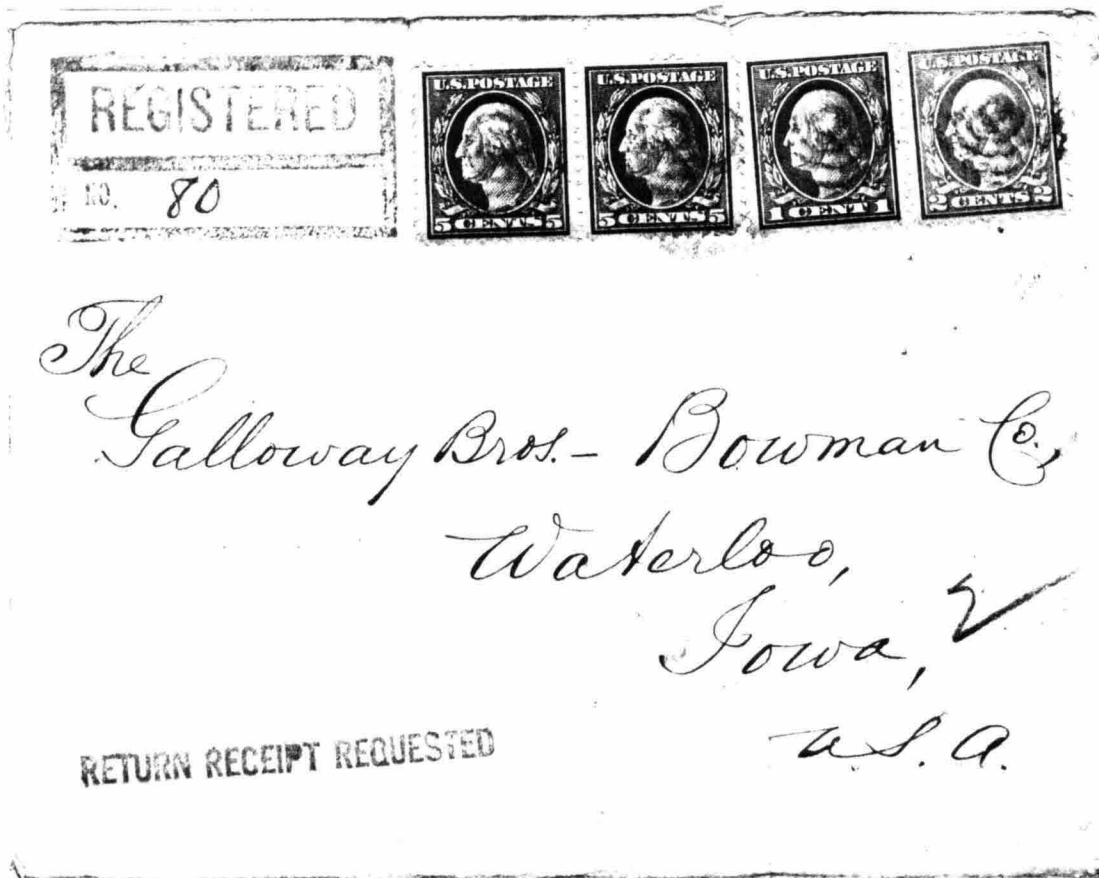 REGISTERED
NO. 80
U.S.POSTAGE
5 CENTS 5
U.S.POSTAGE
5 CENTS 5
U.S.POSTAGE
1 CENT 1
U.S.POSTAGE
2 CENTS 2
The
Galloway Bros. - Bowman Co.,
Waterloo,
Iowa,
U.S.A.
RETURN RECEIPT REQUESTED